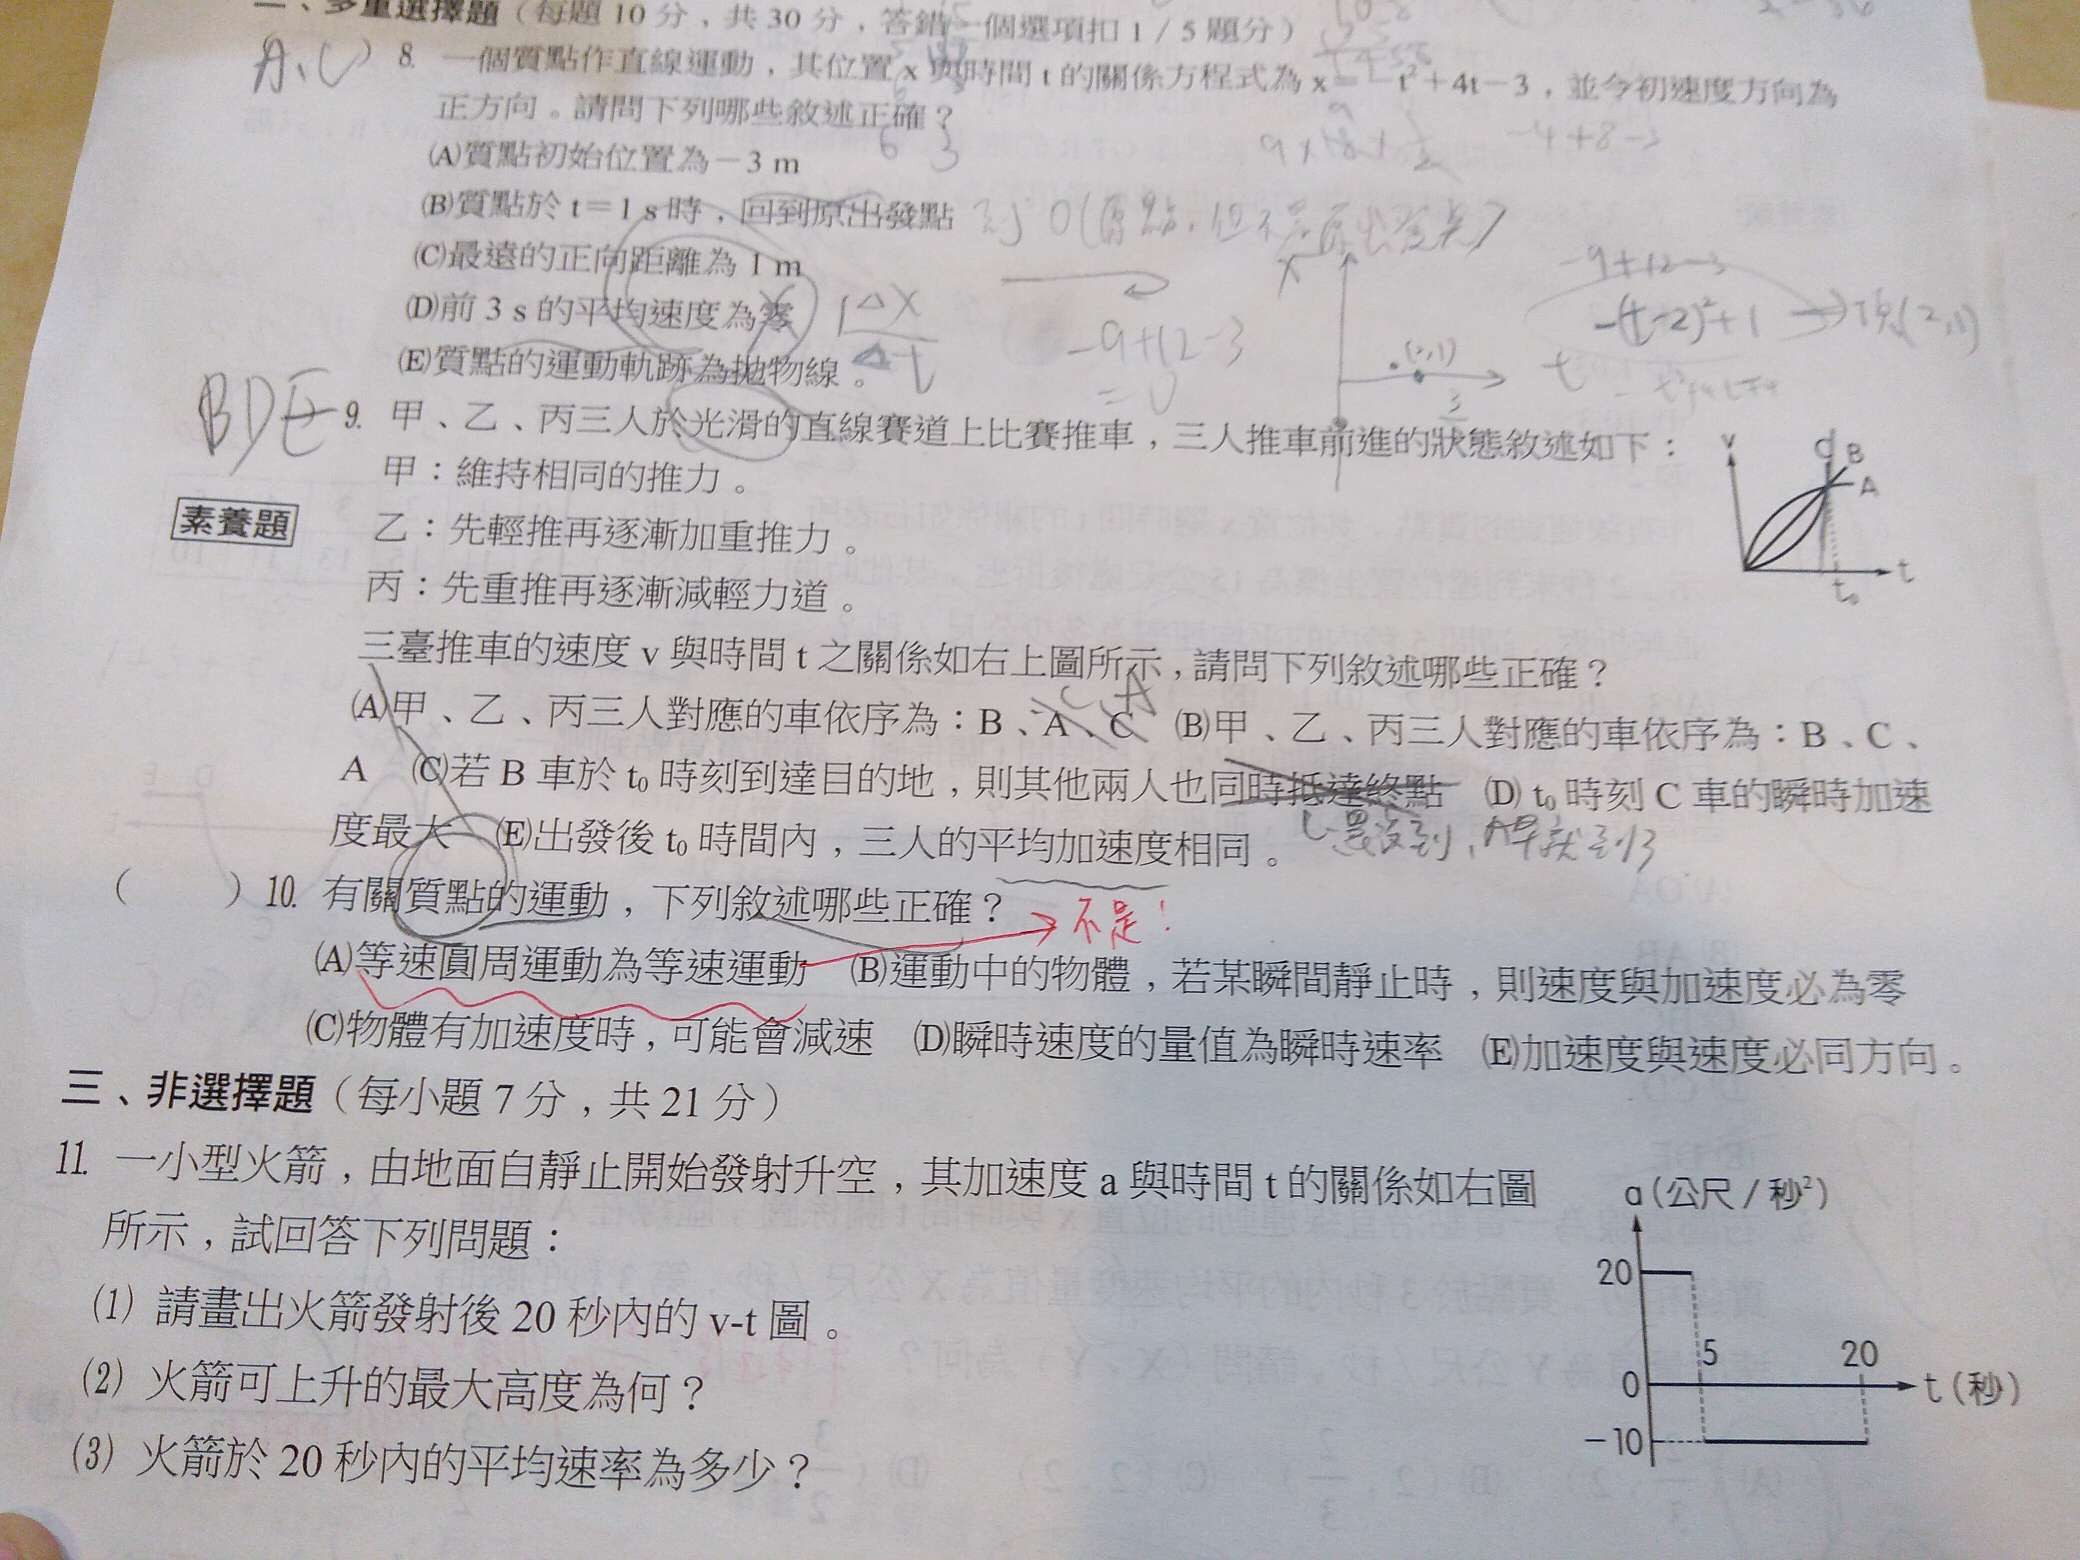 二、多重選擇題（每題10分，共30分，答錯一個選項扣1/5題分）
A、C）8. 一個質點作直線運動，其位置x與時間t的關係方程式為x＝－t²＋4t－3，並令初速度方向為
正方向。請問下列哪些敘述正確？
(A)質點初始位置為－3 m
(B)質點於t＝1 s時，回到原出發點
(C)最遠的正向距離為1 m
(D)前3 s的平均速度為零
(E)質點的運動軌跡為拋物線。
ΔX
Δt
－9+12－3
＝0
－4+8－3
－9+12－3
－(t－2)²+1 → 頂(2,1)
x
t
BDE 9. 甲、乙、丙三人於光滑的直線賽道上比賽推車，三人推車前進的狀態敘述如下：
甲：維持相同的推力。
素養題
乙：先輕推再逐漸加重推力。
丙：先重推再逐漸減輕力道。
v
C
B
A
t
t₀
三臺推車的速度v與時間t之關係如右上圖所示，請問下列敘述哪些正確？
C、A
(A)甲、乙、丙三人對應的車依序為：B、A、C　(B)甲、乙、丙三人對應的車依序為：B、C、
A　(C)若B車於t₀時刻到達目的地，則其他兩人也同時抵達終點　(D) t₀時刻C車的瞬時加速
度最大　(E)出發後t₀時間內，三人的平均加速度相同。
C還沒到，A早就到了
（　　）10. 有關質點的運動，下列敘述哪些正確？
不是！
(A)等速圓周運動為等速運動　(B)運動中的物體，若某瞬間靜止時，則速度與加速度必為零
(C)物體有加速度時，可能會減速　(D)瞬時速度的量值為瞬時速率　(E)加速度與速度必同方向。
三、非選擇題（每小題7分，共21分）
11. 一小型火箭，由地面自靜止開始發射升空，其加速度a與時間t的關係如右圖
所示，試回答下列問題：
(1) 請畫出火箭發射後20秒內的v-t圖。
(2) 火箭可上升的最大高度為何？
(3) 火箭於20秒內的平均速率為多少？
a(公尺/秒²)
20
5
20
0
t(秒)
－10